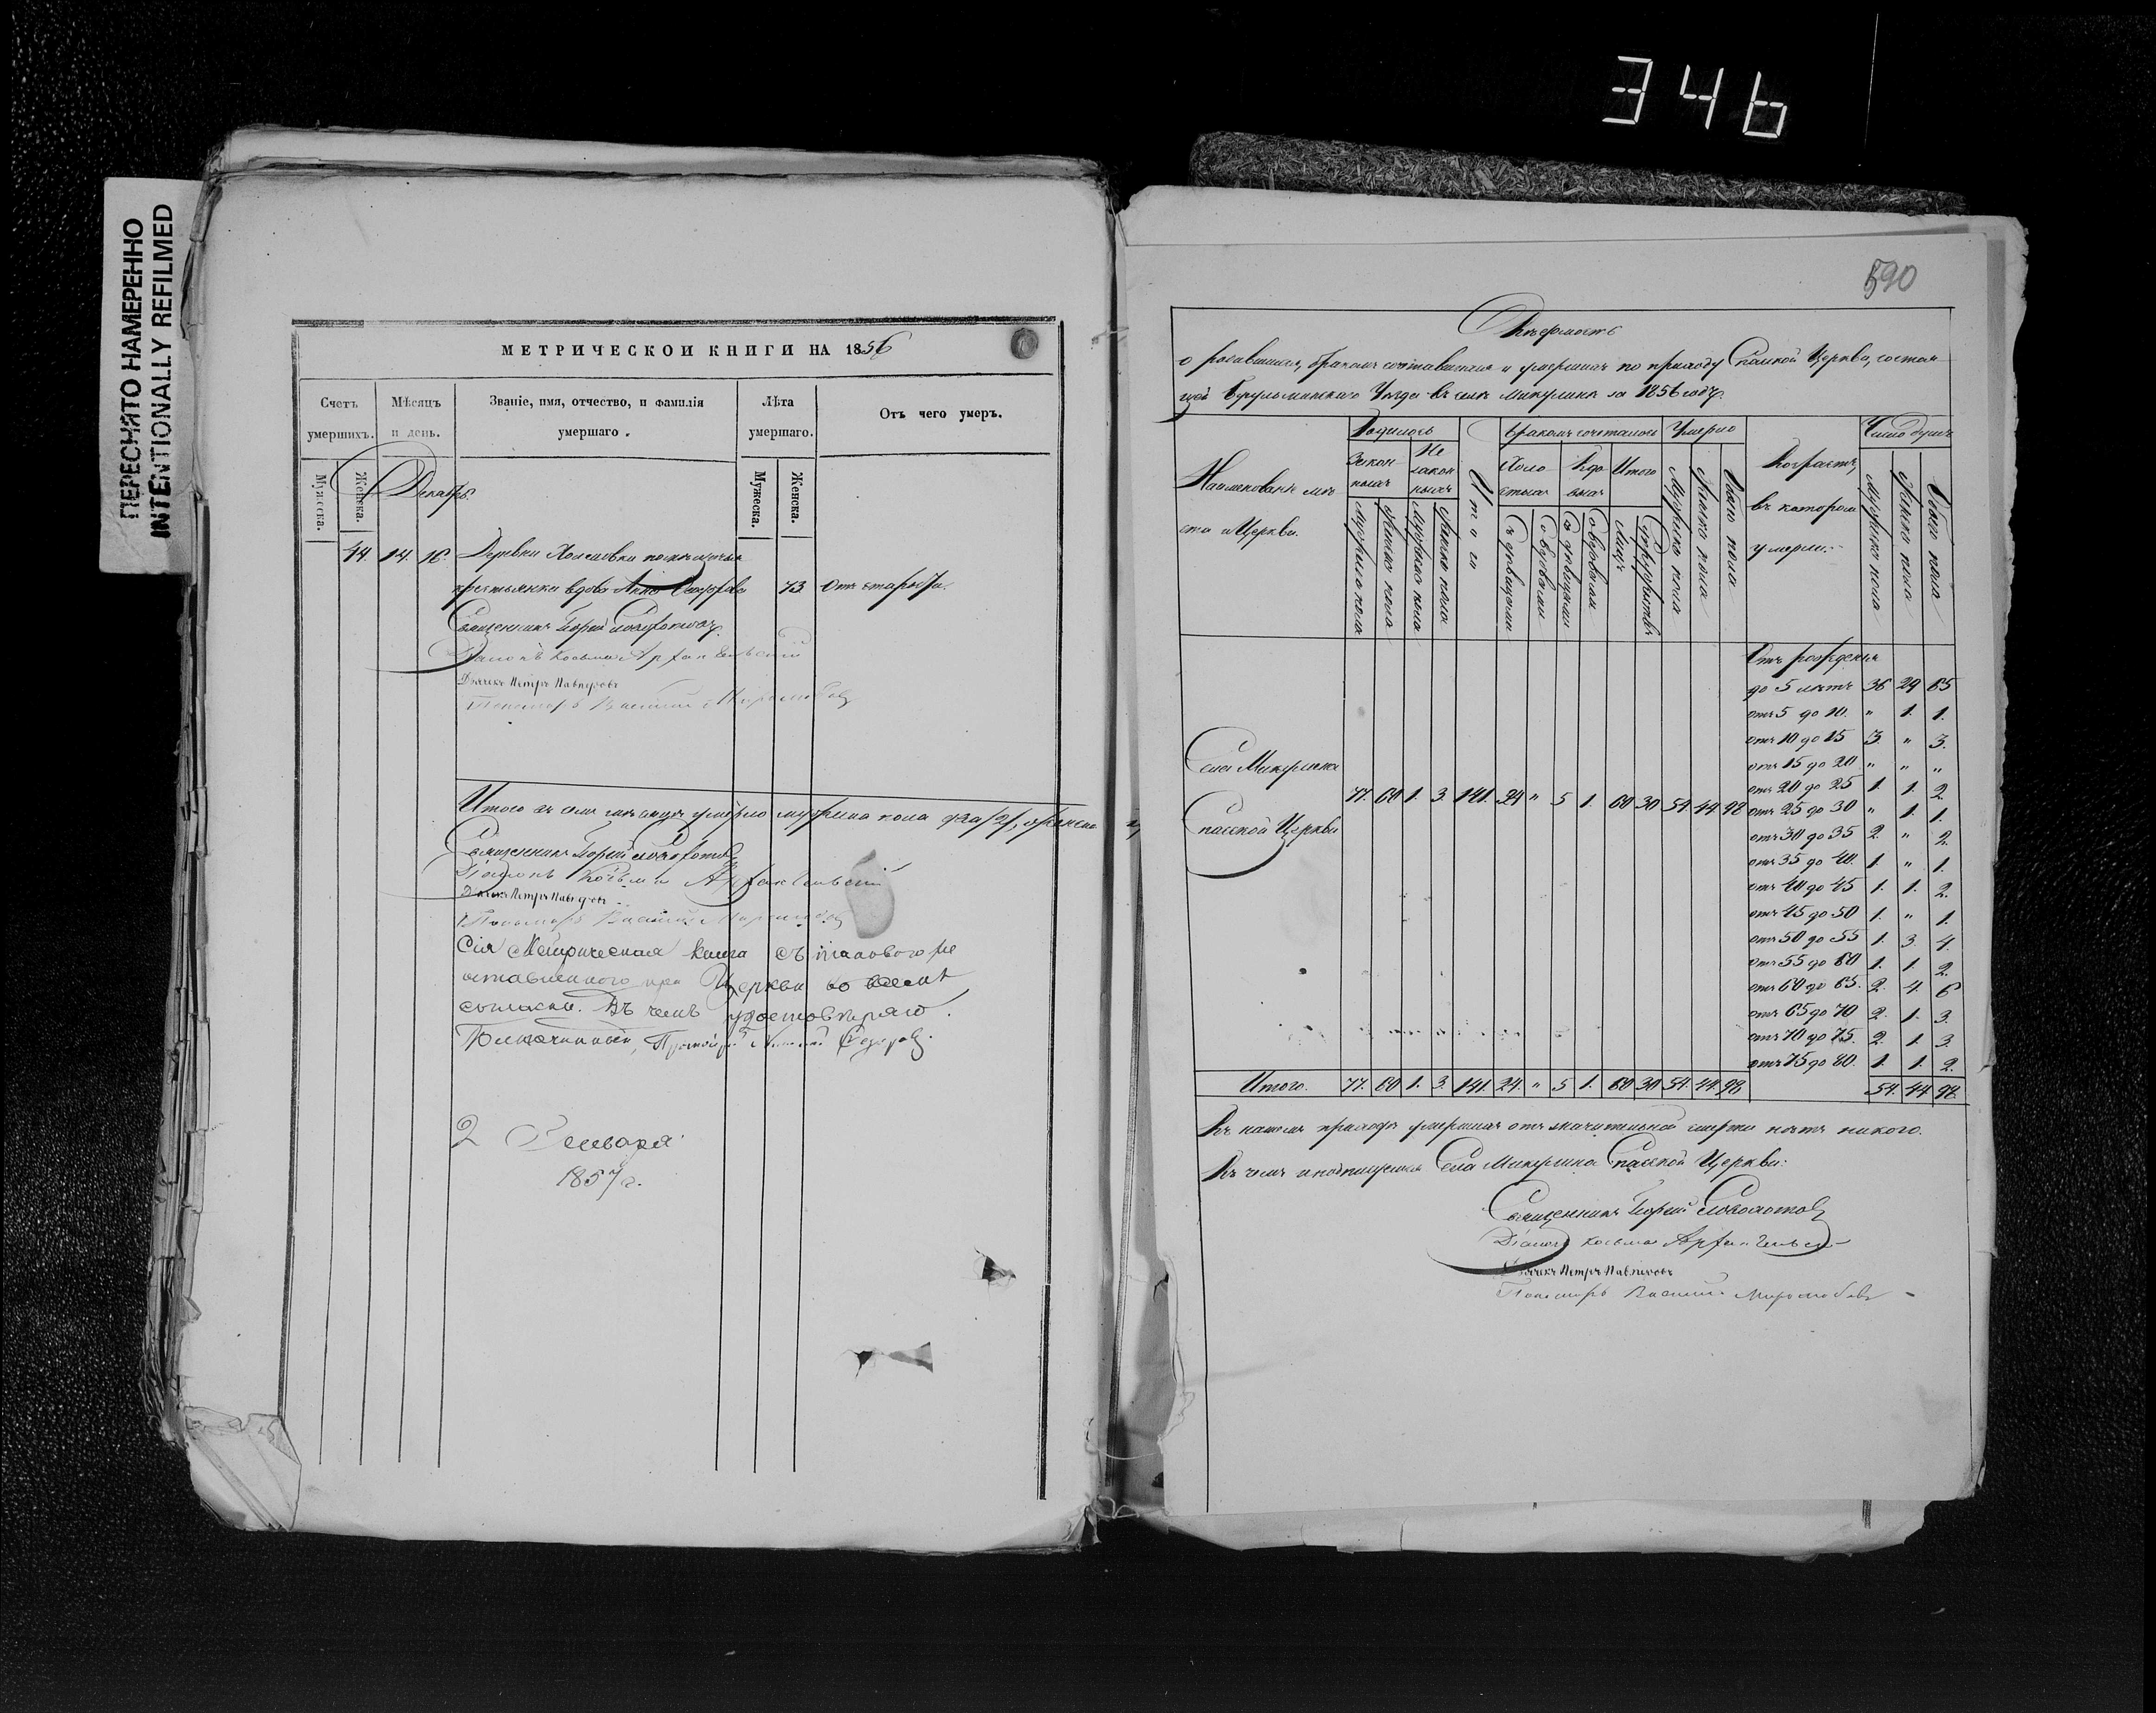 346
ПЕРЕСНЯТО НАМЕРЕННО
INTENTIONALLY REFILMED
МЕТРИЧЕСКОЙ КНИГИ НА 1856
Счетъ умершихъ.
Мѣсяцъ и день.
Званіе, имя, отчество, и фамилія умершаго.
Лѣта умершаго.
Отъ чего умеръ.
Мужеска.
Женска.
Мужеска.
Женска.
Декабрь
44. 14. 16. Деревни
крестьянка вдова Анна 73 Отъ старости.
Священникъ
Діаконъ Косьма Архангельскій
Дьячекъ Петръ
Пономарь Василій Миролюбовъ
Итого въ семъ мѣсяцѣ умерло мужеска пола два /2/, женска
Священникъ
Діаконъ Косьма Архангельскій
Дьячекъ Петръ
Пономарь Василій
Сія Метрическая книга съ таковою же
оставленною при Церкви во всемъ
согласна. Въ чемъ удостовѣряю.
Благочинный,
2 Генваря
1857 г.
590
Вѣдомость
о родившихся, бракомъ сочетавшихся и умершихъ по приходу Спасской Церкви, состоя
щей Бугульминскаго Уѣзда въ селѣ Микулинѣ за 1856 годъ.
Наименованіе мѣста и Церкви.
Родилось
Законныхъ
Незаконныхъ
Итого
Бракомъ сочеталось
Холостыхъ
Вдовыхъ
Итого
Умерло
Возрастъ, въ которомъ умерли.
Число душъ
Мужеска пола
Женска пола
Мужеска пола
Женска пола
съ дѣвицами
со вдовами
съ дѣвицами
со вдовами
Лицъ
Супружествъ
Мужеска пола
Женска пола
Обоего пола
Мужеска пола
Женска пола
Обоего пола
Отъ рожденія
до 5 лѣтъ 36 29 65
отъ 5 до 10. " 1. 1.
отъ 10 до 15 3. " 3.
отъ 15 до 20 " " "
отъ 20 до 25 1. 1. 2.
Села Микулина
Спасской Церкви
77. 60 1. 3. 141. 24 " 5 1. 60 30 54. 44. 98
отъ 25 до 30 " 1. 1.
отъ 30 до 35 2. " 2.
отъ 35 до 40. 1. " 1.
отъ 40 до 45 1. 1. 2.
отъ 45 до 50 1. " 1.
отъ 50 до 55 1. 3. 4.
отъ 55 до 60 1. 1. 2.
отъ 60 до 65. 2. 4. 6
отъ 65 до 70 2. 1. 3.
отъ 70 до 75. 2. 1. 3.
отъ 75 до 80. 1. 1. 2.
Итого. 77. 60 1. 3. 141. 24. " 5 1. 60 30 54. 44. 98 54. 44. 98.
Въ нашемъ приходѣ умершихъ отъ значительной смерти нѣтъ никого.
Въ чемъ и подпишемся Села Микулина Спасской Церкви:
Священникъ
Діаконъ Косьма Архангельскій
Дьячекъ Петръ
Пономарь Василій Миролюбовъ